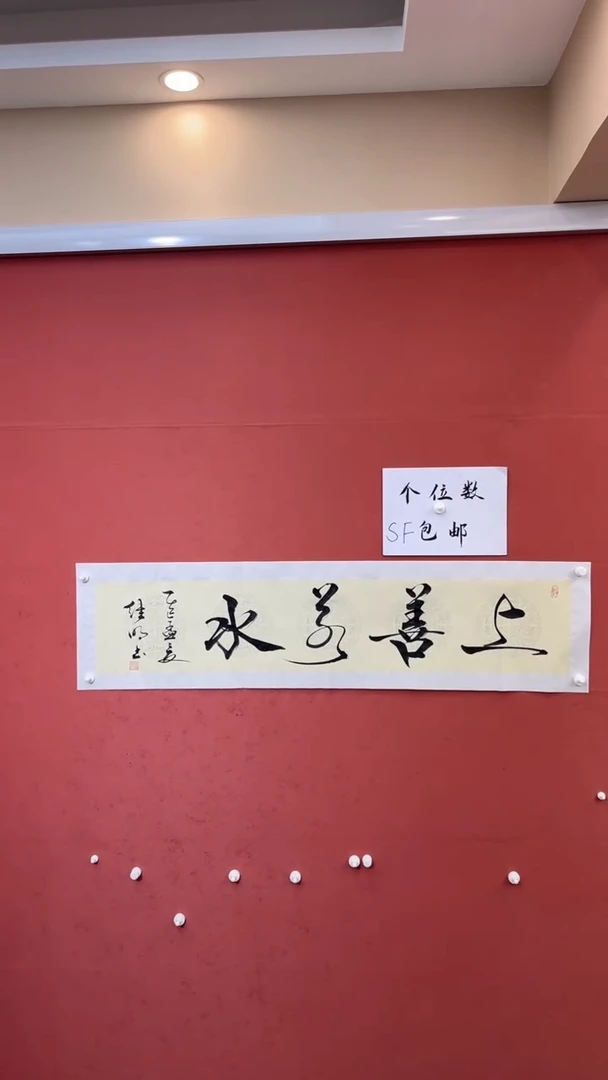 个位数
SF包邮
上善若水
乙巳孟夏
佳明书